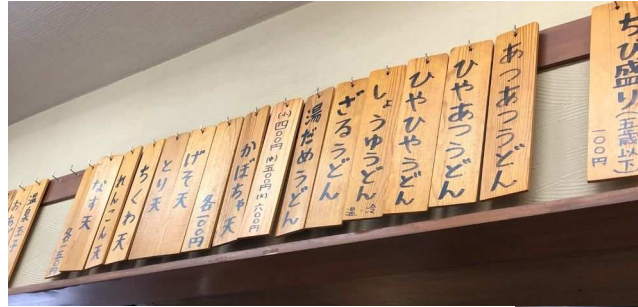 ちび盛り(五歳以下)
一〇〇円
あつあつうどん
ひやあつうどん
ひやひやうどん
しょうゆうどん
温・冷
ざるうどん
湯だめうどん
(小)四〇〇円(中)五〇〇円(大)六〇〇円
かぼちゃ天
各一〇〇円
げそ天
とり天
ちくわ天
れんこん天
なす天
各一五〇円
温泉玉子